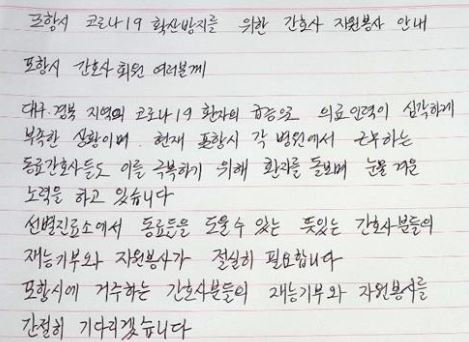 포항시 코로나19 확산방지를 위한 간호사 자원봉사 안내
포항시 간호사 회원 여러분께
대구·경북 지역의 코로나19 환자의 급증으로 의료인력이 심각하게
부족한 상황이며. 현재 포항시 각 병원에서 근무하는
동료간호사들도 이를 극복하기 위해 환자를 돌보며 눈물겨운
노력을 하고 있습니다
선별진료소에서 동료들을 도울수 있는 뜻있는 간호사분들의
재능기부와 자원봉사가 절실히 필요합니다
포항시에 거주하는 간호사분들의 재능기부와 자원봉사를
간절히 기다리겠습니다